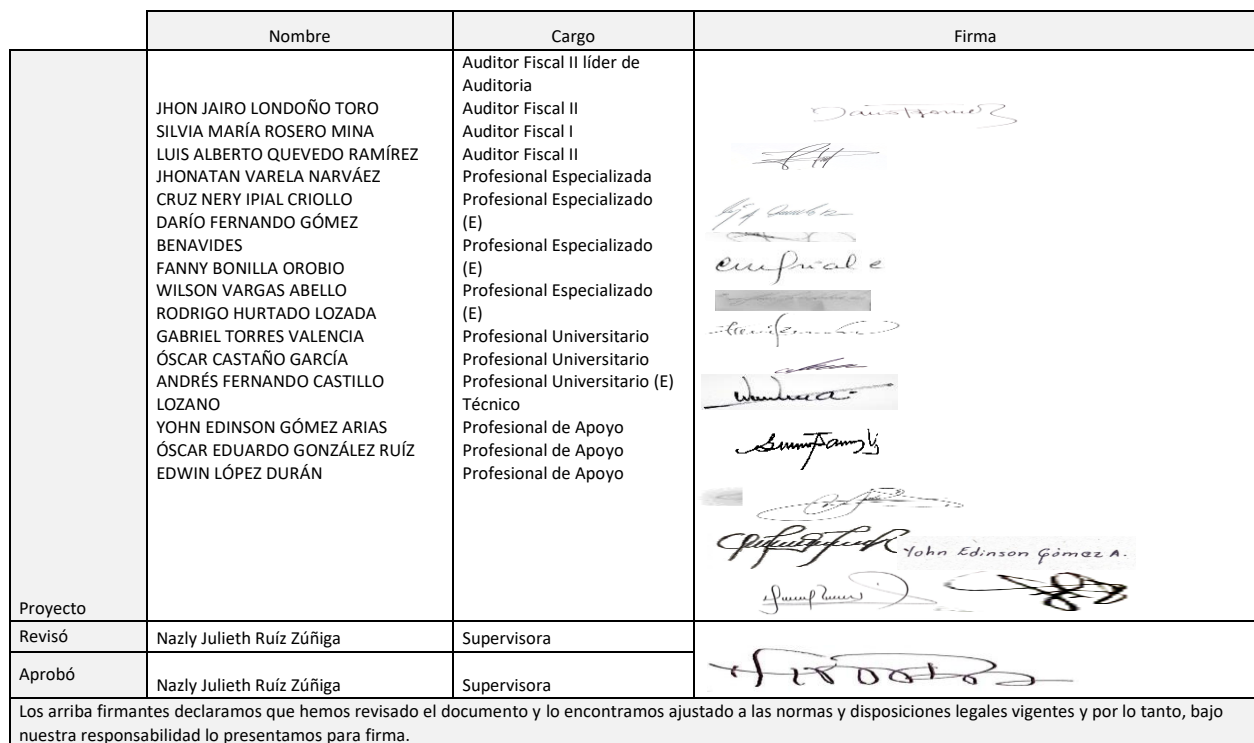 Nombre
Cargo
Firma
Proyecto
JHON JAIRO LONDOÑO TORO
SILVIA MARÍA ROSERO MINA
LUIS ALBERTO QUEVEDO RAMÍREZ
JHONATAN VARELA NARVÁEZ
CRUZ NERY IPIAL CRIOLLO
DARÍO FERNANDO GÓMEZ
BENAVIDES
FANNY BONILLA OROBIO
WILSON VARGAS ABELLO
RODRIGO HURTADO LOZADA
GABRIEL TORRES VALENCIA
ÓSCAR CASTAÑO GARCÍA
ANDRÉS FERNANDO CASTILLO
LOZANO
YOHN EDINSON GÓMEZ ARIAS
ÓSCAR EDUARDO GONZÁLEZ RUÍZ
EDWIN LÓPEZ DURÁN
Auditor Fiscal II líder de
Auditoria
Auditor Fiscal II
Auditor Fiscal I
Auditor Fiscal II
Profesional Especializada
Profesional Especializado
(E)
Profesional Especializado
(E)
Profesional Especializado
(E)
Profesional Universitario
Profesional Universitario
Profesional Universitario (E)
Técnico
Profesional de Apoyo
Profesional de Apoyo
Profesional de Apoyo
Yohn Edinson Gómez A.
Revisó
Nazly Julieth Ruíz Zúñiga
Supervisora
Aprobó
Nazly Julieth Ruíz Zúñiga
Supervisora
Los arriba firmantes declaramos que hemos revisado el documento y lo encontramos ajustado a las normas y disposiciones legales vigentes y por lo tanto, bajo
nuestra responsabilidad lo presentamos para firma.